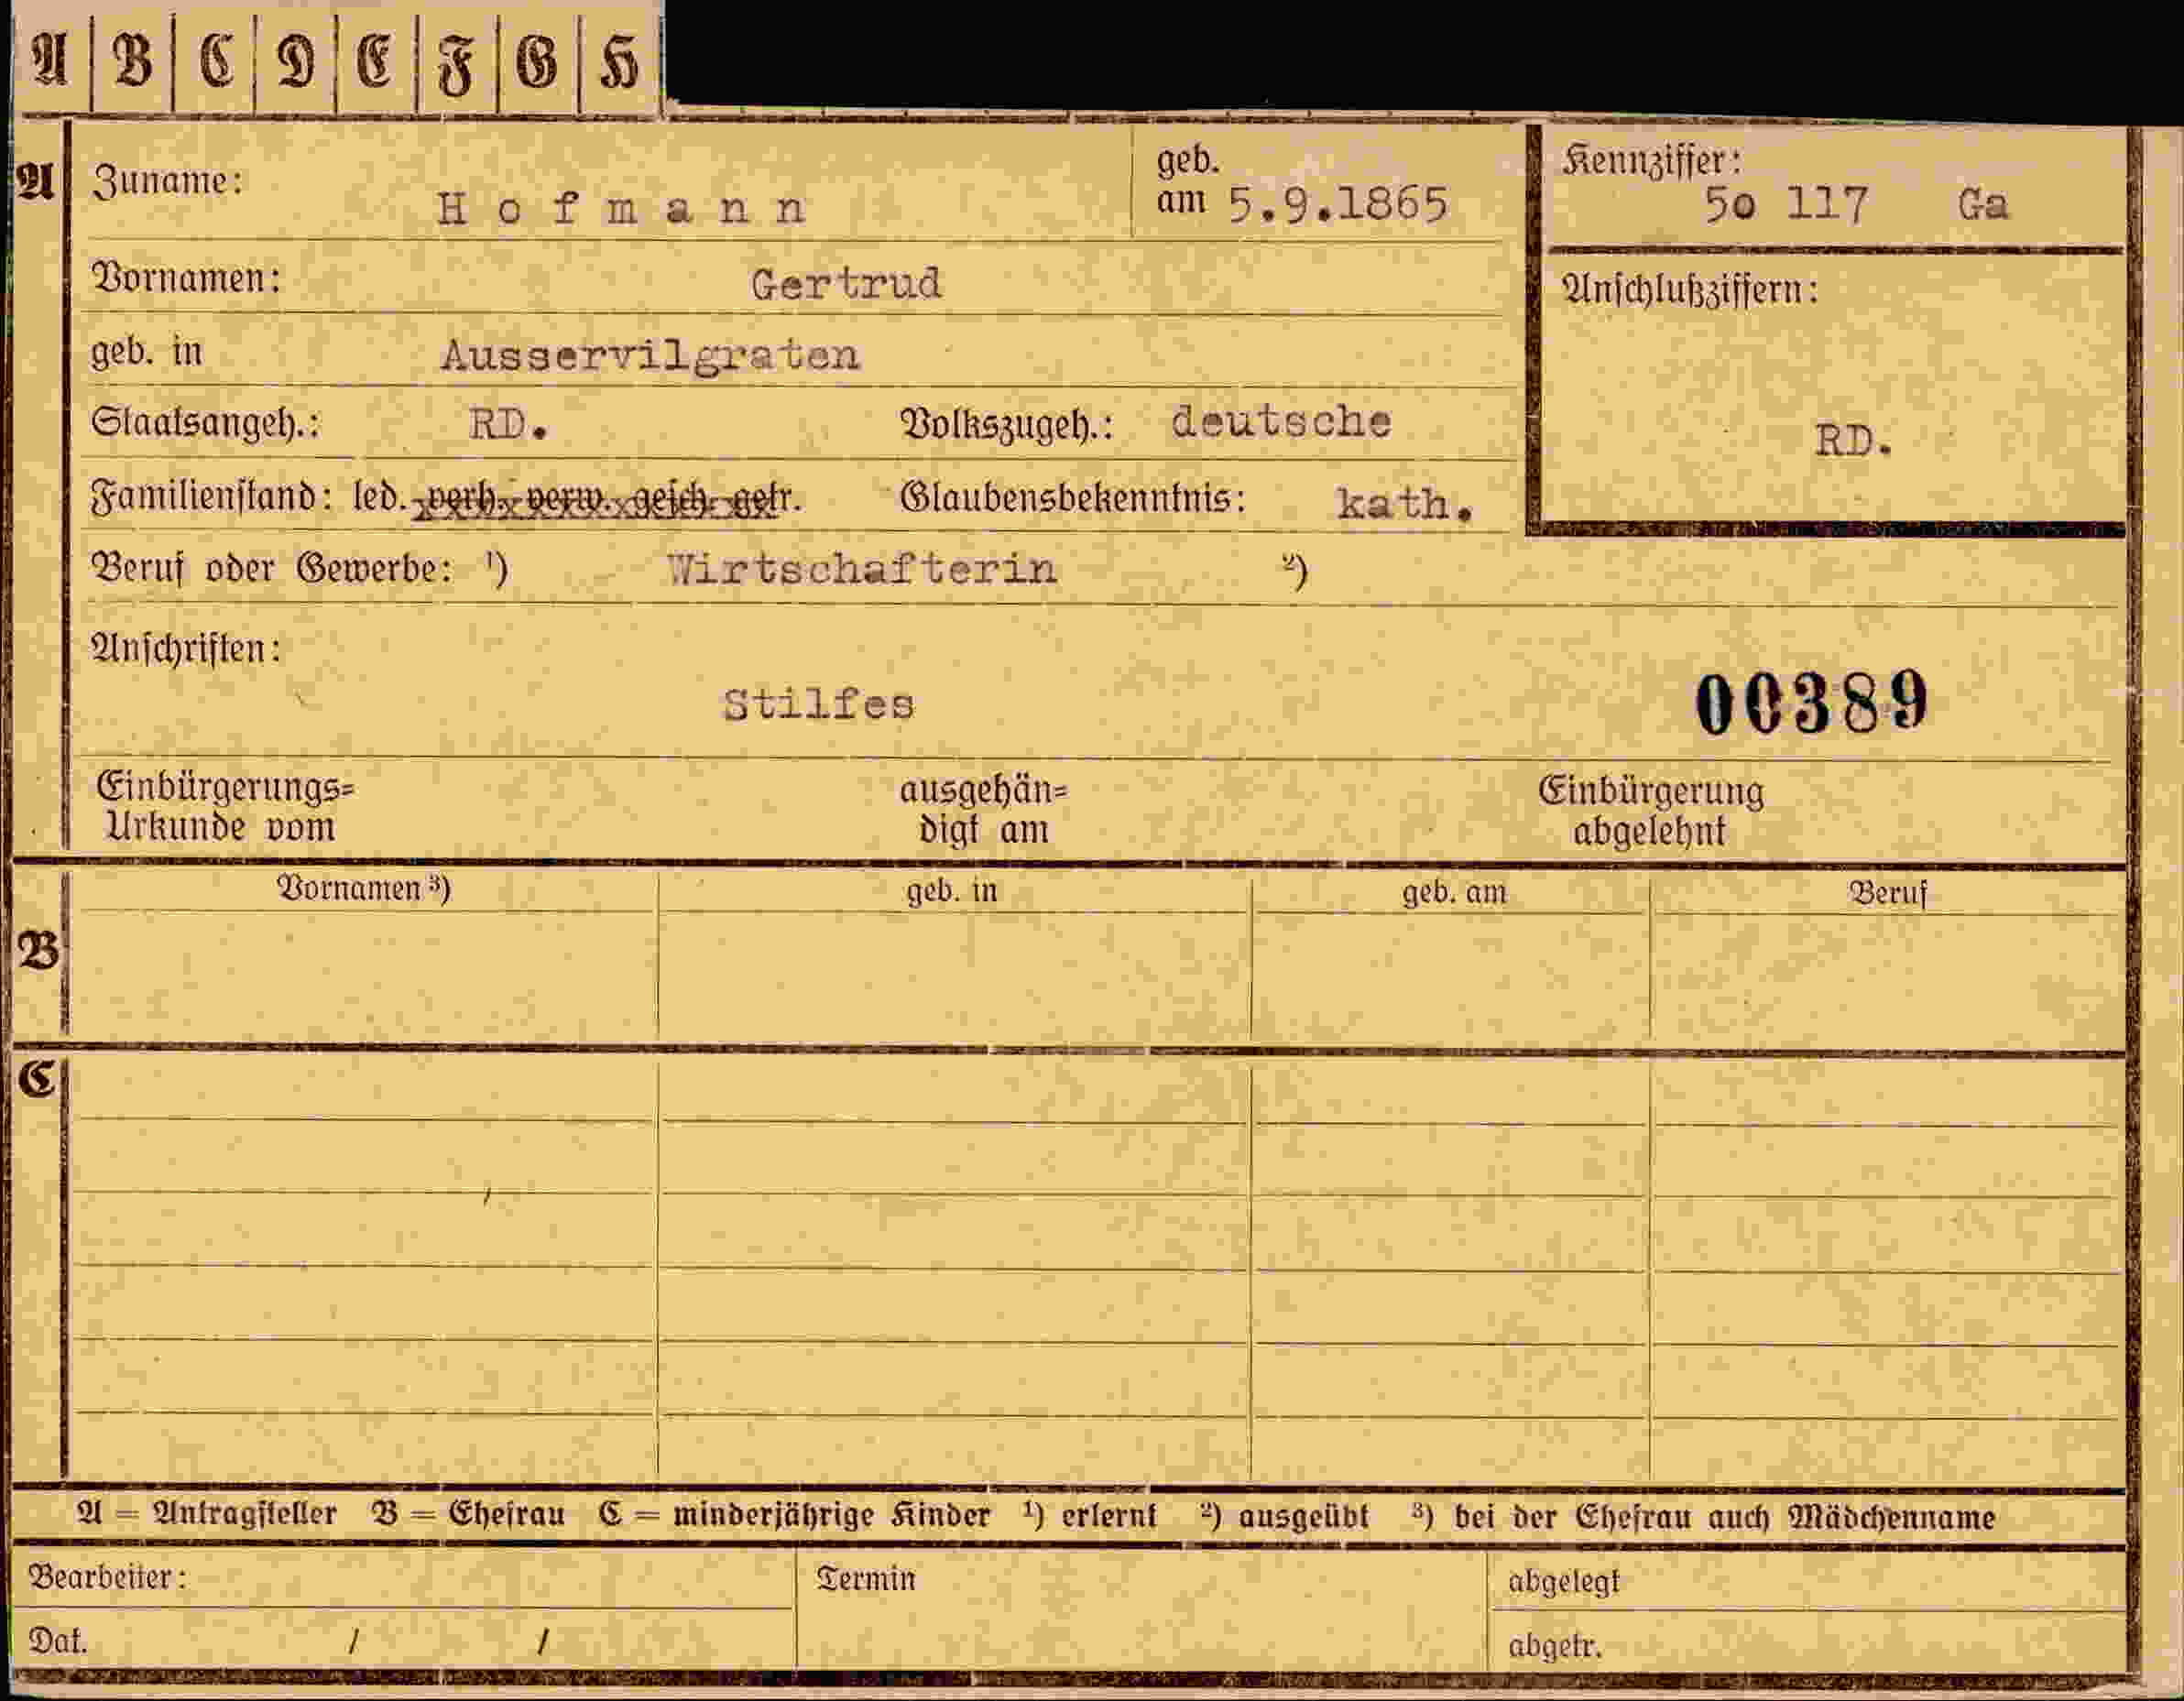 A B C D E F G H
A Zuname: Hofmann geb. am 5.9.1865 Kennziffer: 5o 117 Ga
Vornamen: Gertrud Anschlußziffern:
geb. in Ausservilgraten
Staatsangeh.: RD. Volkszugeh.: deutsche RD.
Familienstand: led. verh. verw. gesch. getr. Glaubensbekenntnis: kath.
Beruf oder Gewerbe: ¹) Wirtschafterin ²)
Anschriften:
Stilfes 00389
Einbürgerungs= ausgehän= Einbürgerung
Urkunde vom digt am abgelehnt
Vornamen ³) geb. in geb. am Beruf
B
C
A = Antragsteller B = Ehefrau C = minderjährige Kinder ¹) erlernt ²) ausgeübt ³) bei der Ehefrau auch Mädchenname
Bearbeiter: Termin abgelegt
Dat. / / abgetr.